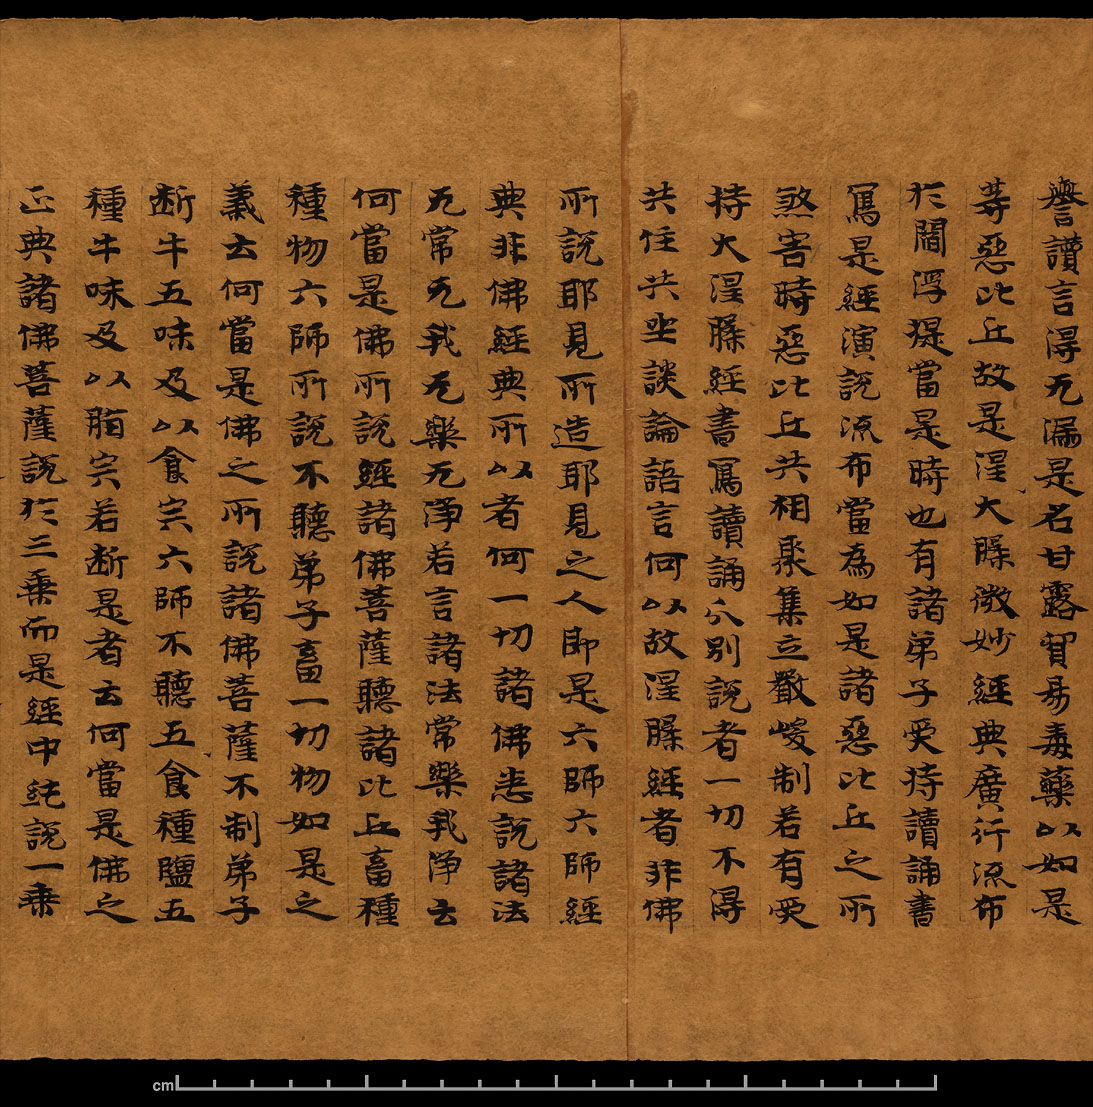 譽讚言得无漏是名甘露貿易毒藥以如是
等惡比丘故是涅大槃微妙經典廣行流布
於閻浮提當是時也有諸弟子受持讀誦書
寫是經演說流布當為如是諸惡比丘之所
煞害時惡比丘共相聚集立嚴峻制若有受
持大涅槃經書寫讀誦分別說者一切不得
共住共坐談論語言何以故涅槃經者非佛
所說耶見所造耶見之人即是六師六師經
典非佛經典所以者何一切諸佛悉說諸法
无常无我无樂无淨若言諸法常樂我淨云
何當是佛所說經諸佛菩薩聽諸比丘畜種
種物六師所說不聽弟子畜一切物如是之
義云何當是佛之所說諸佛菩薩不制弟子
断牛五味及以食宍六師不聽五食種鹽五
種牛味及以脂宍若断是者云何當是佛之
正典諸佛菩薩說於三乗而是經中純說一乗